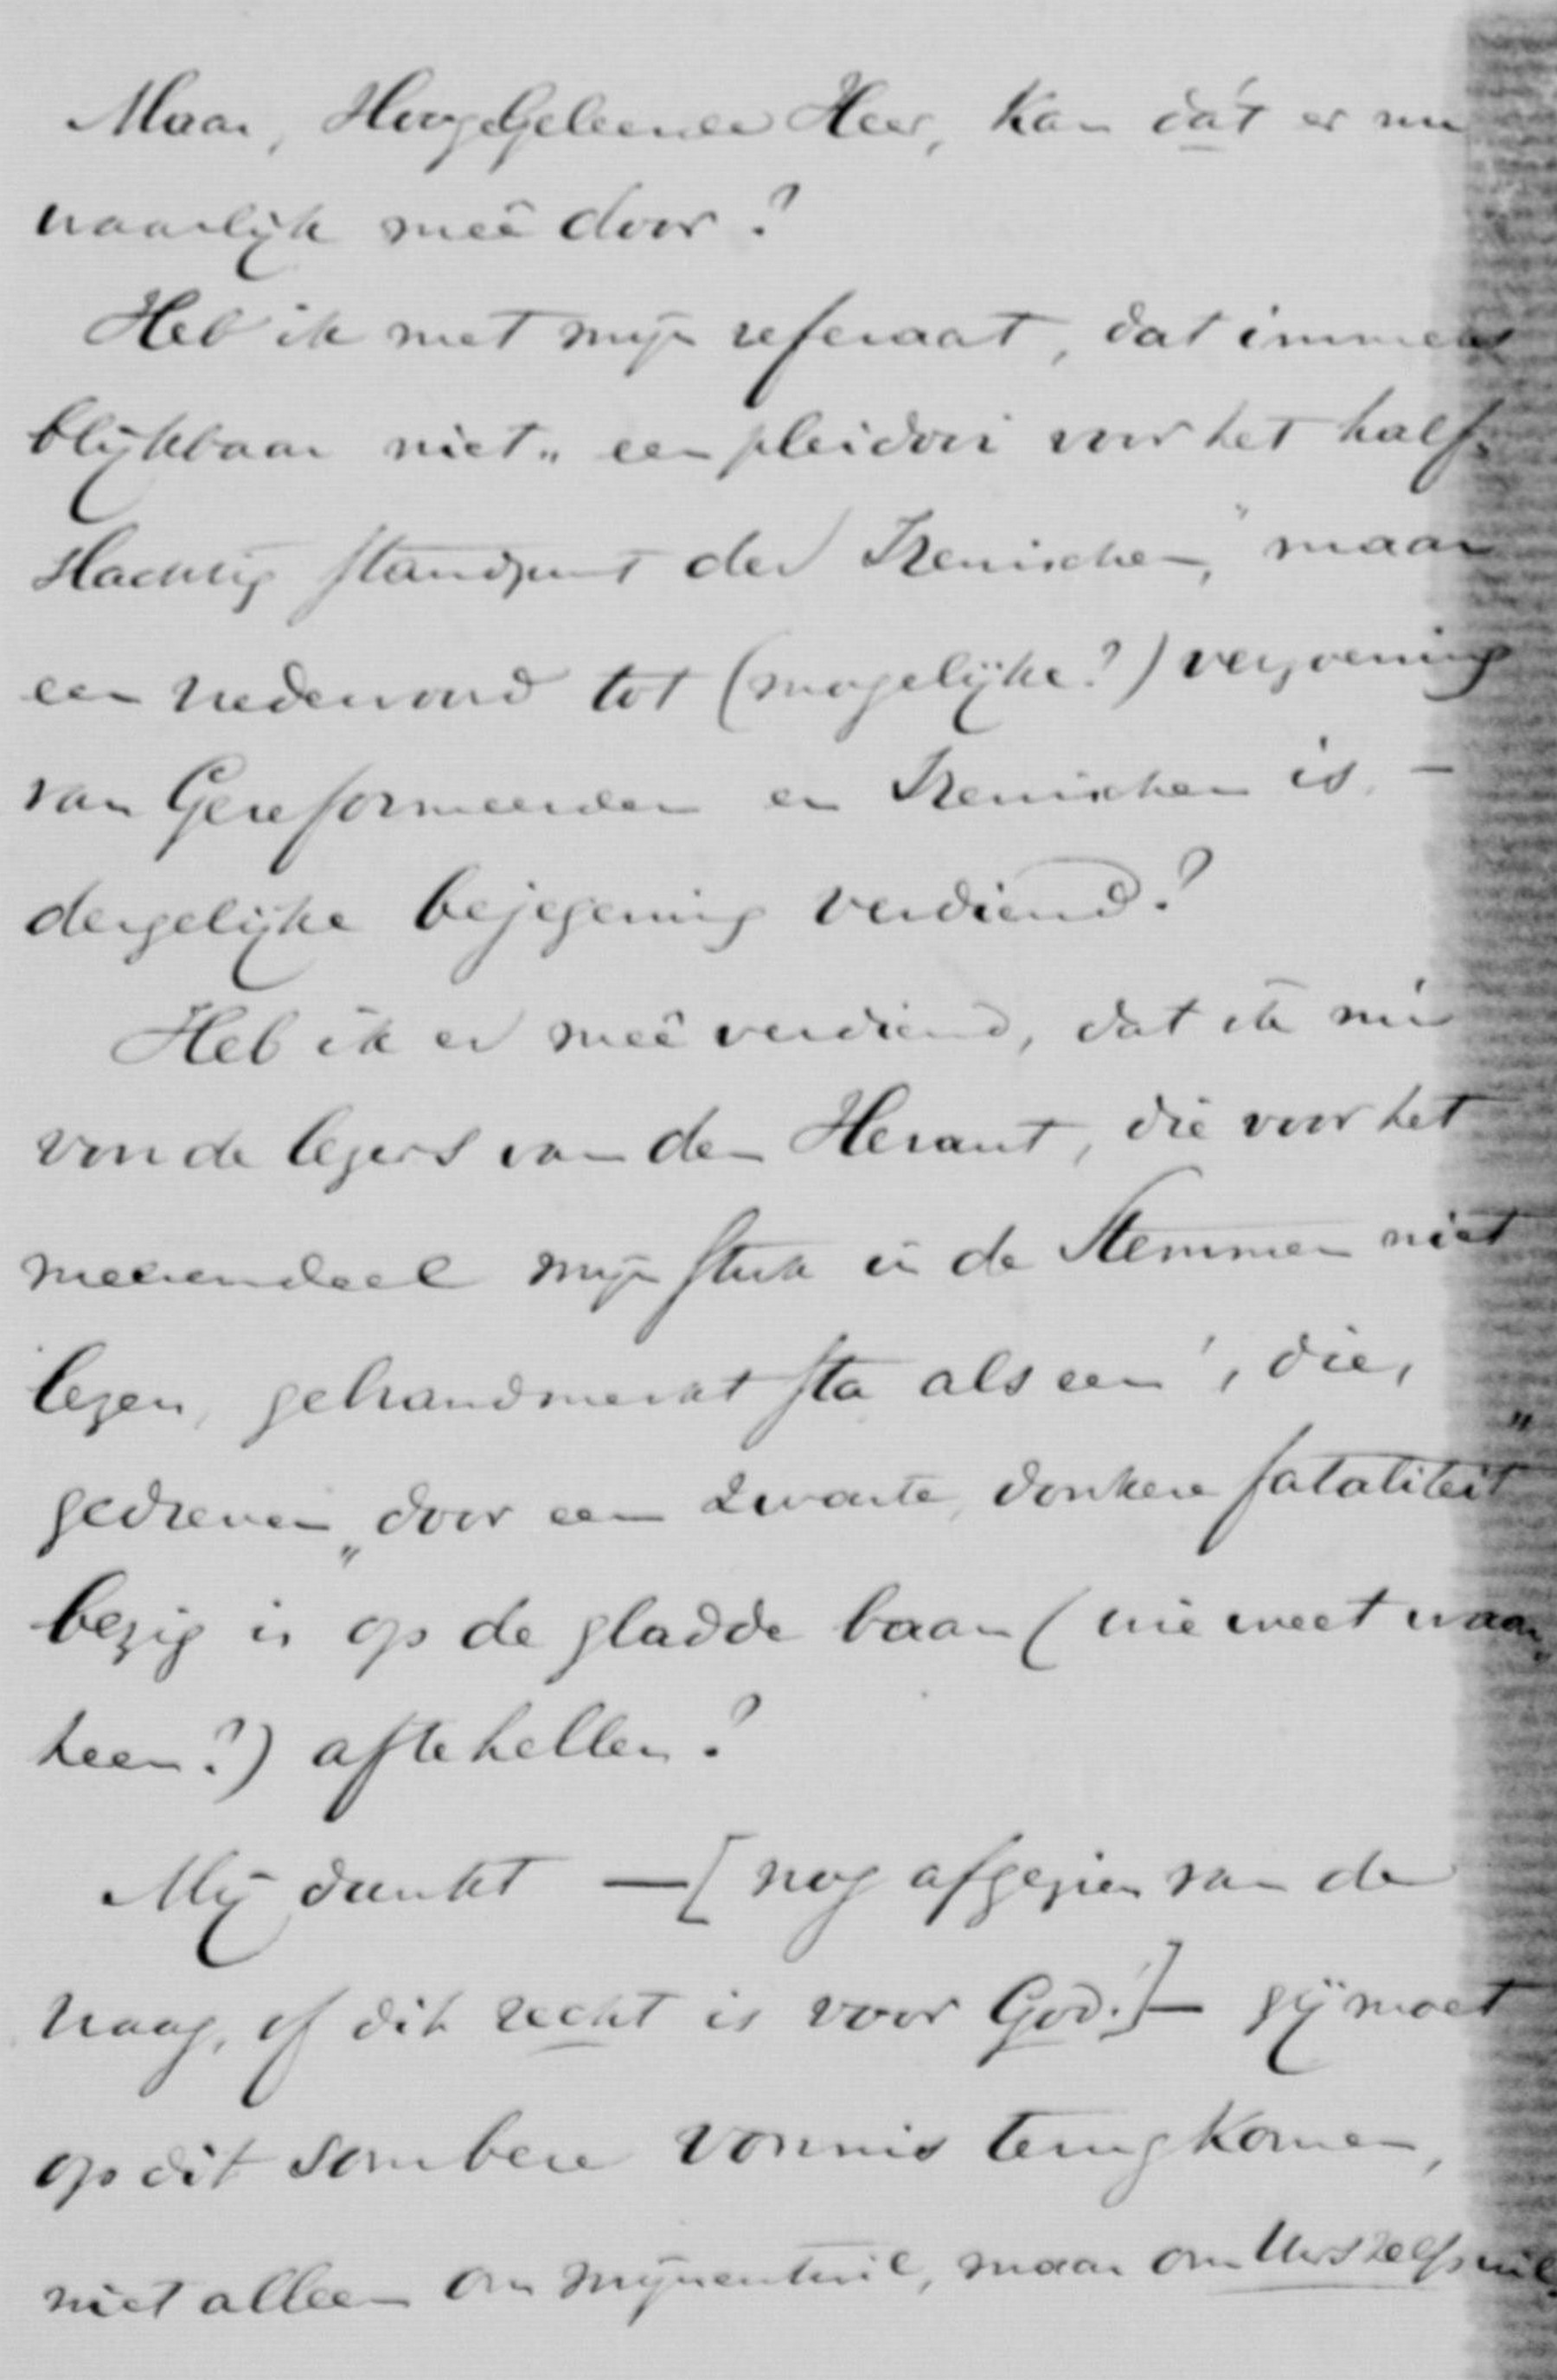 Maar, HoogGeleerde Heer, kan dát er nu
waarlijk meê door?
Heb ik met mijn referaat, dat immers
blijkbaar niet „een pleidooi voor het half-
slachtig standpunt der Irenischen," maar
een wederwoord tot (mogelijke?) verzoening
van Gereformeerden en Irenischen is, —
dergelijke bejegening verdiend?
Heb ik er meê verdiend, dat ik nu
voor de lezers van den Heraut, die voor het
meerendeel mijn stuk in de Stemmen niet
lezen, gebrandmerkt sta als een', die,
gedreven „door een zwarte, donkere fataliteit"
bezig is op de gladde baan (wie weet waar-
heen?) aftehellen?
Mij dunkt — [nog afgezien van de
vraag, of dit recht is voor God!] — gij moet
op dit sombere vonnis terugkomen,
niet alleen om mijnentwil, maar om Uws zelfs wil